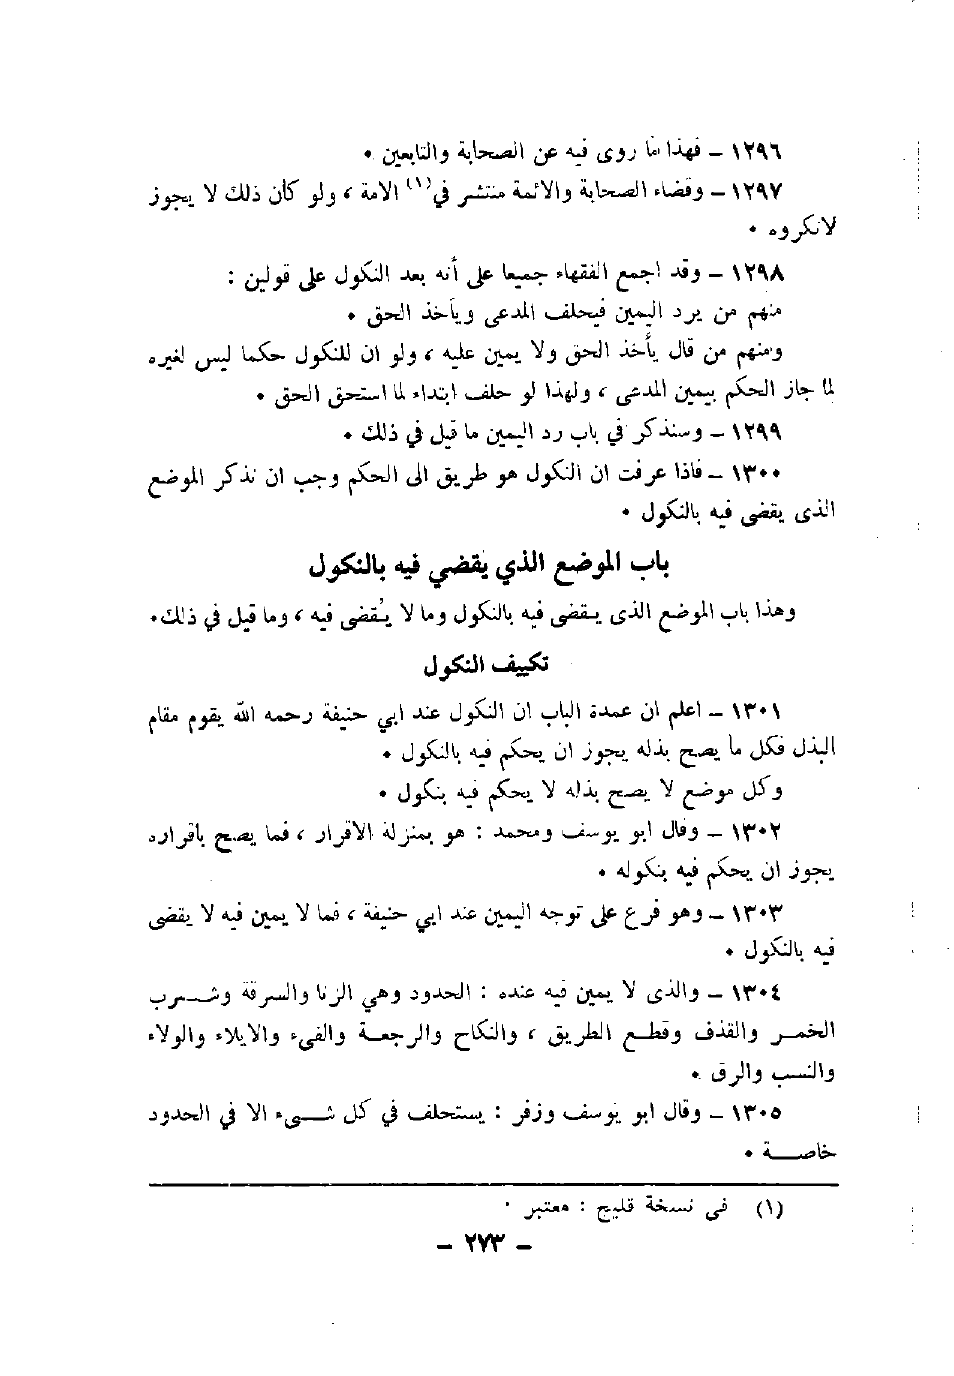 ١٢٩٦ – فهذا ما روى فيه عن الصحابة والتابعين ٠
١٢٩٧ – وقضاء الصحابة والائمة منتشر في(١) الامة ، ولو كان ذلك لا يجوز
لانكروه ٠
١٢٩٨ – وقد اجمع الفقهاء جميعا على أنه بعد النكول على قولين :
منهم من يرد اليمين فيحلف المدعى ويأخذ الحق ٠
ومنهم من قال يأخذ الحق ولا يمين عليه ، ولو ان للنكول حكما ليس لغيره
لما جاز الحكم بيمين المدعى ، ولهذا لو حلف ابتداء لما استحق الحق ٠
١٢٩٩ – وسنذكر في باب رد اليمين ما قيل في ذلك ٠
١٣٠٠ – فاذا عرفت ان النكول هو طريق الى الحكم وجب ان نذكر الموضع
الذى يقضى فيه بالنكول ٠
باب الموضع الذي يقضي فيه بالنكول
وهذا باب الموضع الذى يـقضى فيه بالنكول وما لا يُقضى فيه ، وما قيل في ذلك٠
تكييف النكول
١٣٠١ – اعلم ان عمدة الباب ان النكول عند ابي حنيفة رحمه الله يقوم مقام
البذل فكل ما يصح بذله يجوز ان يحكم فيه بالنكول ٠
وكل موضع لا يصح بذله لا يحكم فيه بنكول ٠
١٣٠٢ – وقال ابو يوسف ومحمد : هو بمنزلة الاقرار ، فما يصح باقراره
يجوز ان يحكم فيه بنكوله ٠
١٣٠٣ – وهو فرع على توجه اليمين عند ابي حنيفة ، فما لا يمين فيه لا يقضى
فيه بالنكول ٠
١٣٠٤ – والذى لا يمين فيه عنده : الحدود وهي الزنا والسرقة وشـــرب
الخمـــر والقذف وقطـع الطريق ، والنكاح والرجعـة والفيء والايلاء والولاء
والنسب والرق ٠
١٣٠٥ – وقال ابو يوسف وزفر : يستحلف في كل شـــيء الا في الحدود
خاصـــة ٠
(١) في نسخة قليج : معتبر ٠
– ٢٧٣ –